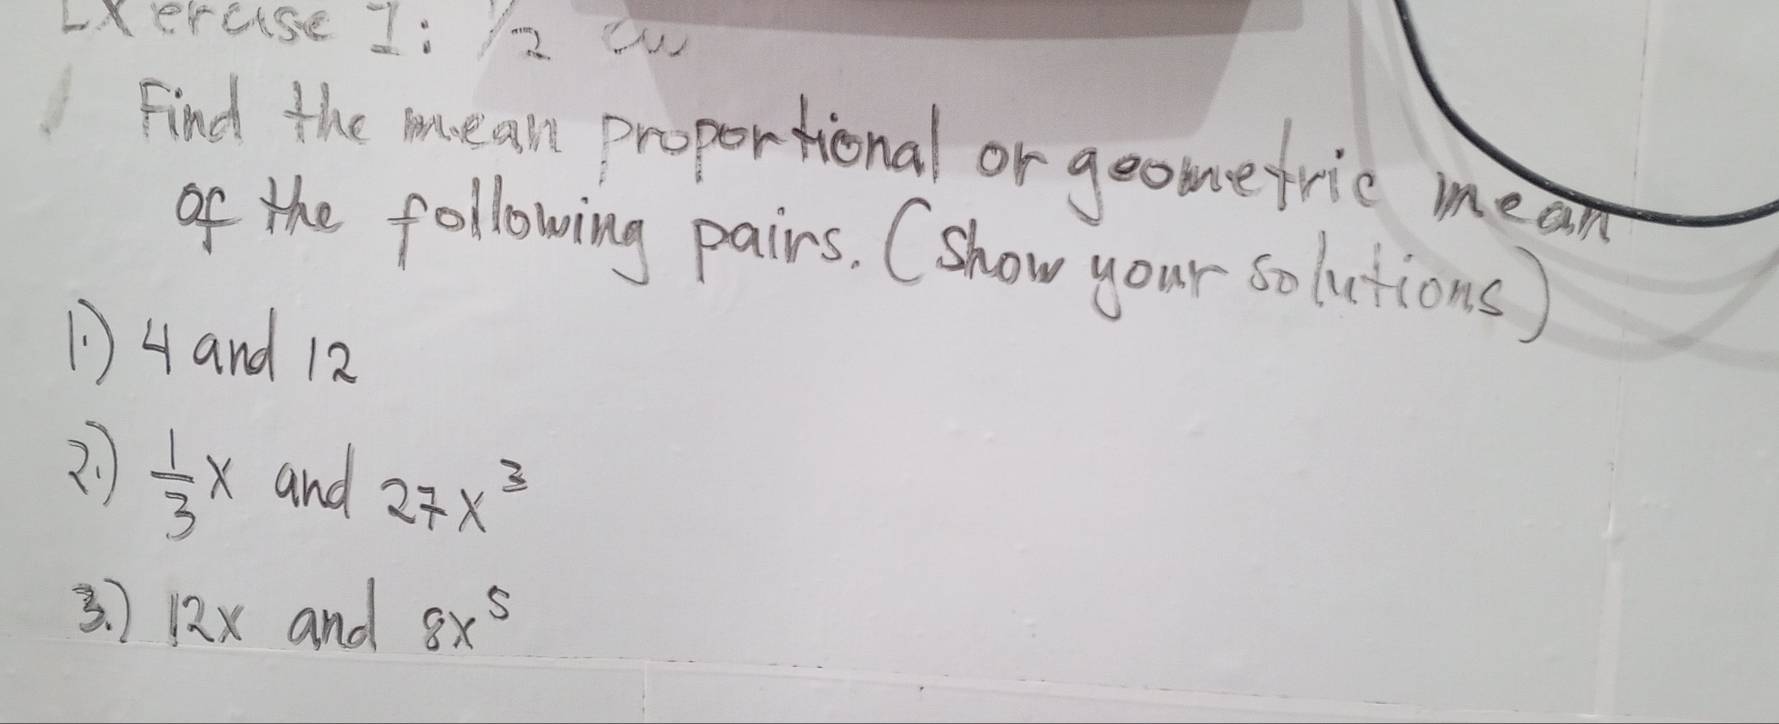 Exercise I: 1/2 cw
Find the mean proportional or geometric mean
of the following pairs. (Show your solutions)
1.) 4 and 12
2.) 1/3 x and 27x³
3.) 12x and 8x⁵